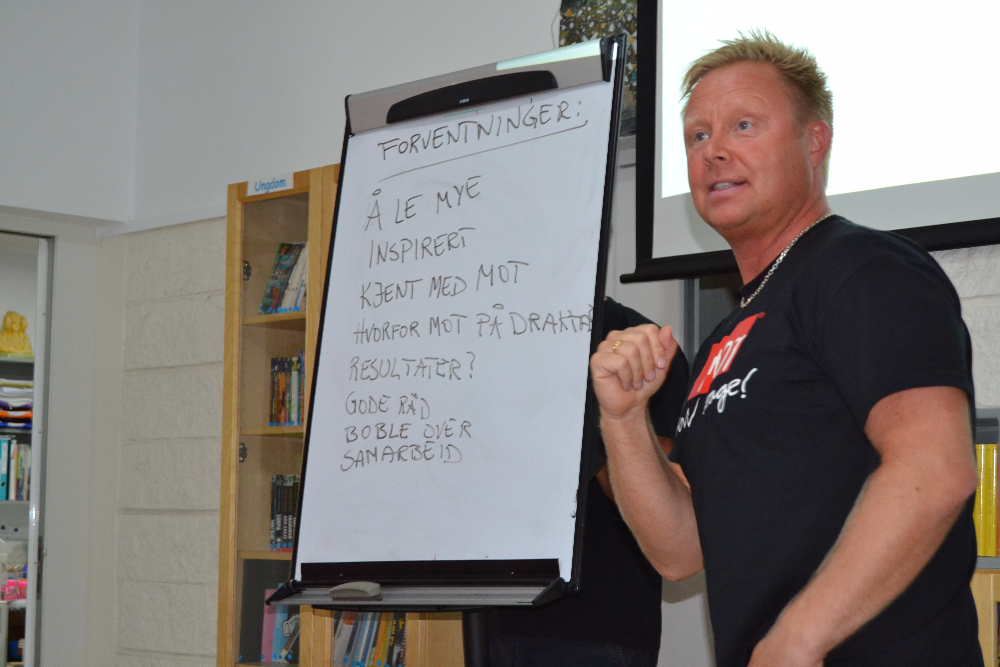 Ungdom
FORVENTNINGER:
Å LE MYE
INSPIRERT
KJENT MED MOT
HVORFOR MOT PÅ DRAKTA
RESULTATER?
GODE RÅD
BOBLE OVER
SAMARBEID
MOT